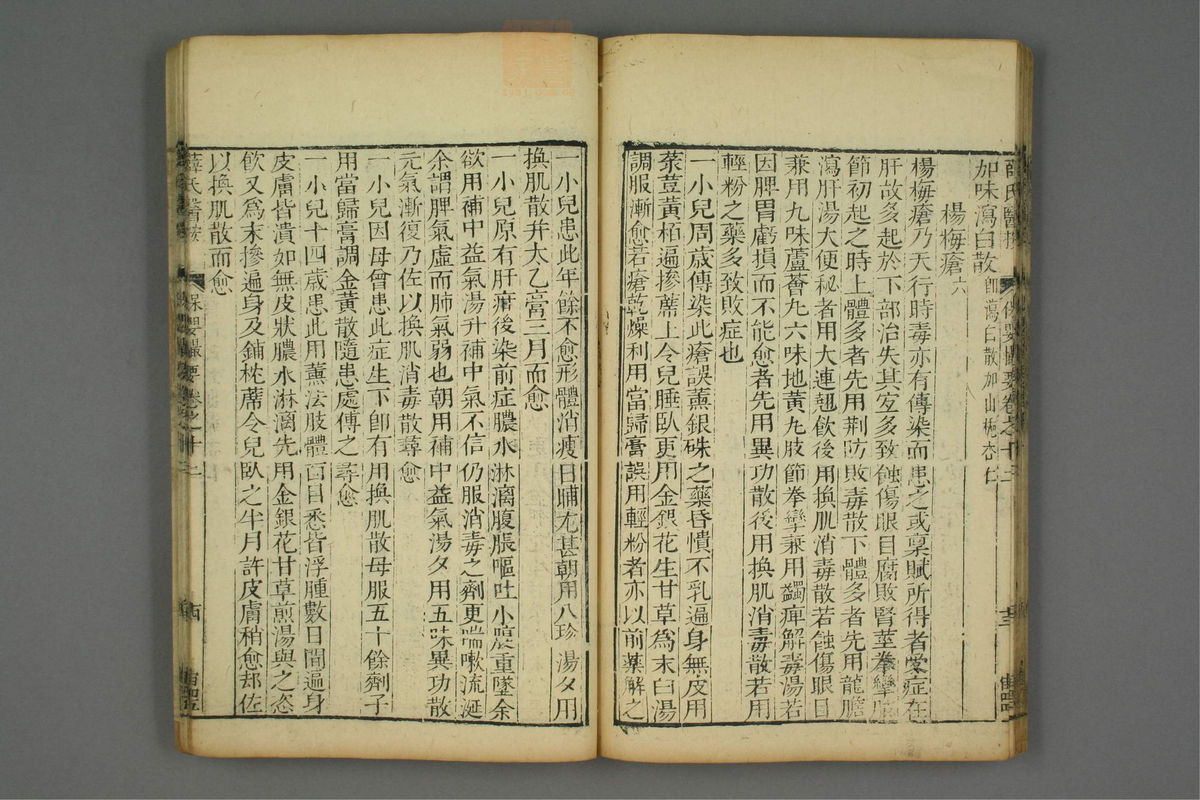 薛氏醫按 保嬰撮要卷之十二
加味瀉白散即瀉白散加山梔杏仁
楊梅瘡六
楊梅瘡乃天行時毒亦有傳染而患之或稟賦所得者受症在
肝故多起於下部治失其宜多致蝕傷眼目腐敗腎莖拳攣
節初起之時上體多者先用荆防敗毒散下體多者先用龍膽
瀉肝湯大便秘者用大連翹飲後用換肌消毒散若蝕傷眼目
兼用九味蘆薈丸六味地黃丸肢節拳攣兼用蠲痺解毒湯若
因脾胃虧損而不能愈者先用異功散後用換肌消毒散若用
輕粉之藥多致敗症也
一小兒周歲傳染此瘡誤薰銀硃之藥昏憒不乳遍身無皮用
菉荳黃栢遍摻蓆上令兒睡臥更用金銀花生甘草爲末白湯
調服漸愈若瘡乾燥利用當歸膏誤用輕粉者亦以前藥解之
一小兒患此年餘不愈形體消瘦日晡尤甚朝用八珍湯夕用
換肌散幷太乙膏三月而愈
一小兒原有肝疳後染前症膿水淋漓腹脹嘔吐小腹重墜余
欲用補中益氣湯升補中氣不信仍服消毒之劑更喘嗽流涎
余謂脾氣虛而肺氣弱也朝用補中益氣湯夕用五味異功散
元氣漸復乃佐以換肌消毒散尋愈
一小兒因母曾患此症生下卽有用換肌散母服五十餘劑子
用當歸膏調金黃散隨患處傅之尋愈
一小兒十四歲患此用薰法肢體面目悉皆浮腫數日間遍身
皮膚皆潰如無皮狀膿水淋漓先用金銀花甘草煎湯與之恣
飲又爲末摻遍身及鋪枕蓆令兒臥之半月許皮膚稍愈却佐
以換肌散而愈
薛氏醫按 保嬰撮要卷之十二